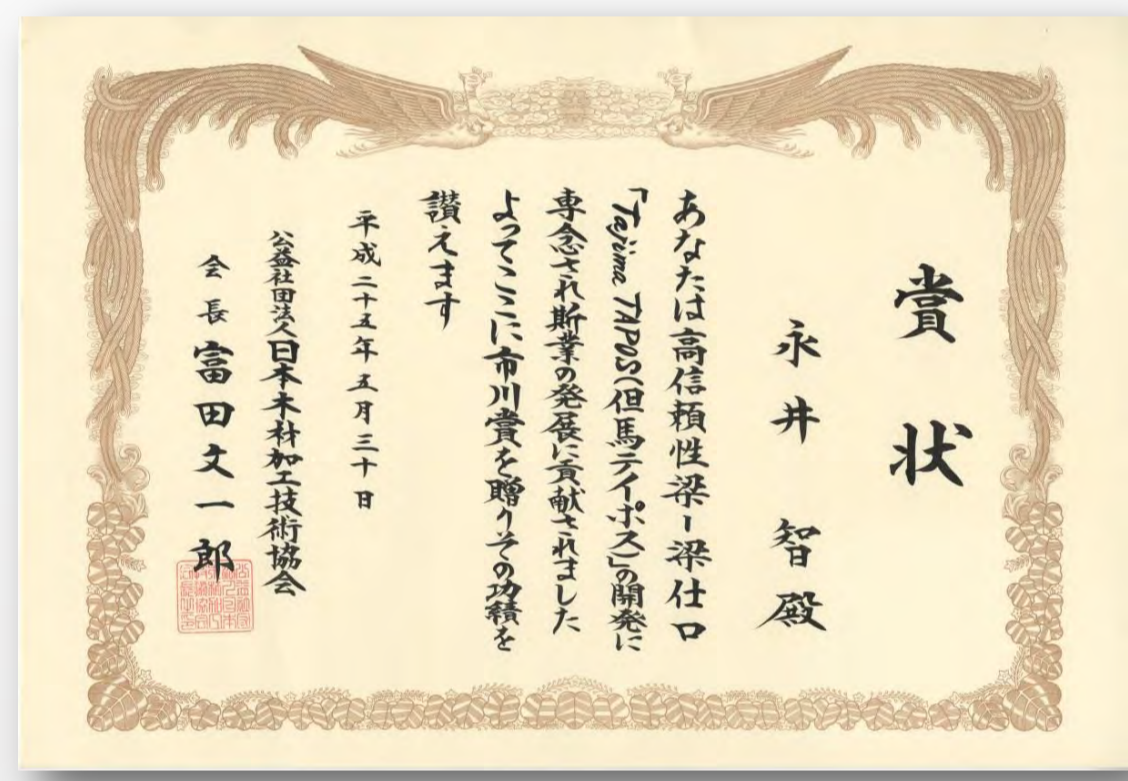 賞状
永井 智殿
あなたは高信頼性梁ー梁仕口
「Tajima TAPOS(但馬テイポス)」の開発に
専念され斯業の発展に貢献されました
よってここに市川賞を贈りその功績を
讃えます
平成二十五年五月三十日
公益社団法人日本木材加工技術協会
会長 富田文一郎